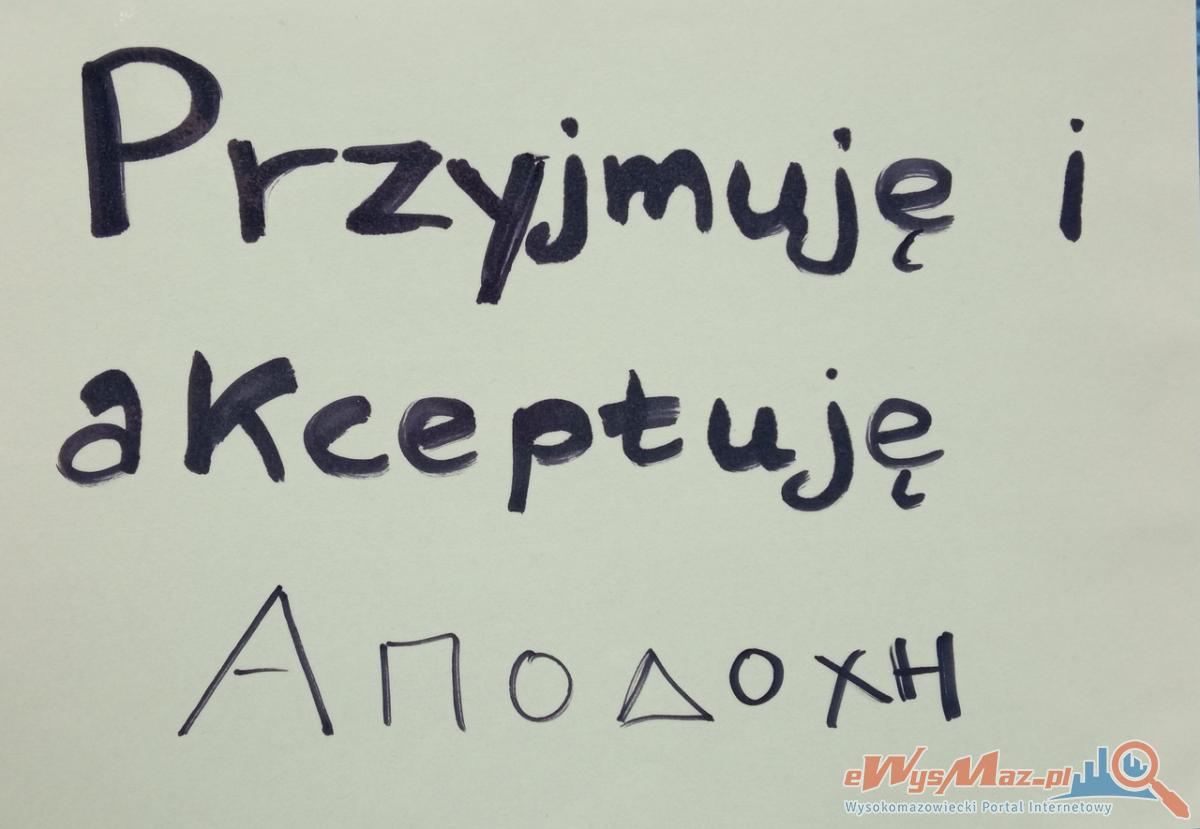 Przyjmuję i
akceptuję
ΑΠΟΔΟΧΗ
eWysMaz.pl
Wysokomazowiecki Portal Internetowy